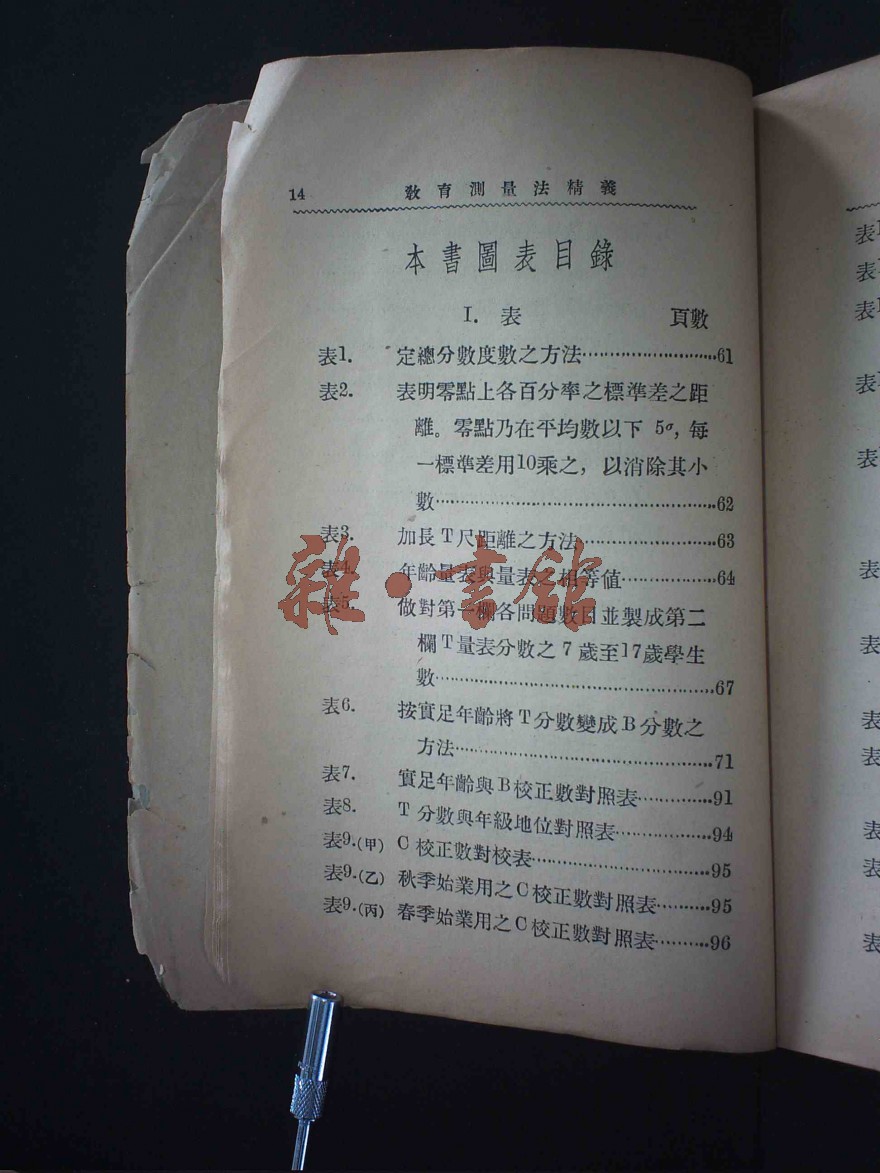 14 教育測量法精義
本書圖表目錄
I. 表 頁數
表1. 定總分數度數之方法……………………61
表2. 表明零點上各百分率之標準差之距
離。零點乃在平均數以下 5σ, 每
一標準差用10乘之, 以消除其小
數……………………………………62
表3. 加長T尺距離之方法……………………63
表4. 年齡量表與量表之相等值………………64
表5. 做對第一欄各問題數目並製成第二
欄T量表分數之7歲至17歲學生
數……………………………………67
表6. 按實足年齡將T分數變成B分數之
方法…………………………………71
表7. 實足年齡與B校正數對照表……………91
表8. T分數與年級地位對照表………………94
表9.(甲) C校正數對校表……………………95
表9.(乙) 秋季始業用之C校正數對照表………95
表9.(丙) 春季始業用之C校正數對照表………96
雜·書館
表1
表
表1
表1
表
表
表
表
表
表
表
表